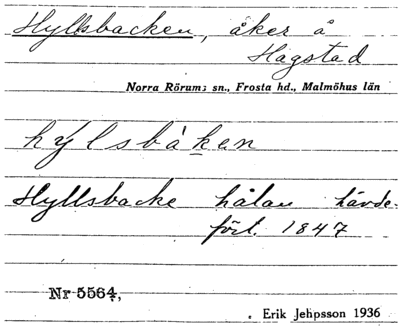 Hyllsbacken, åker å
Hagstad
Norra Rörums sn., Frosta hd., Malmöhus län
hýlsbàken
Hyllsbacke hålan hävde-
fört. 1847
Nr 5564,
. Erik Jeppsson 1936